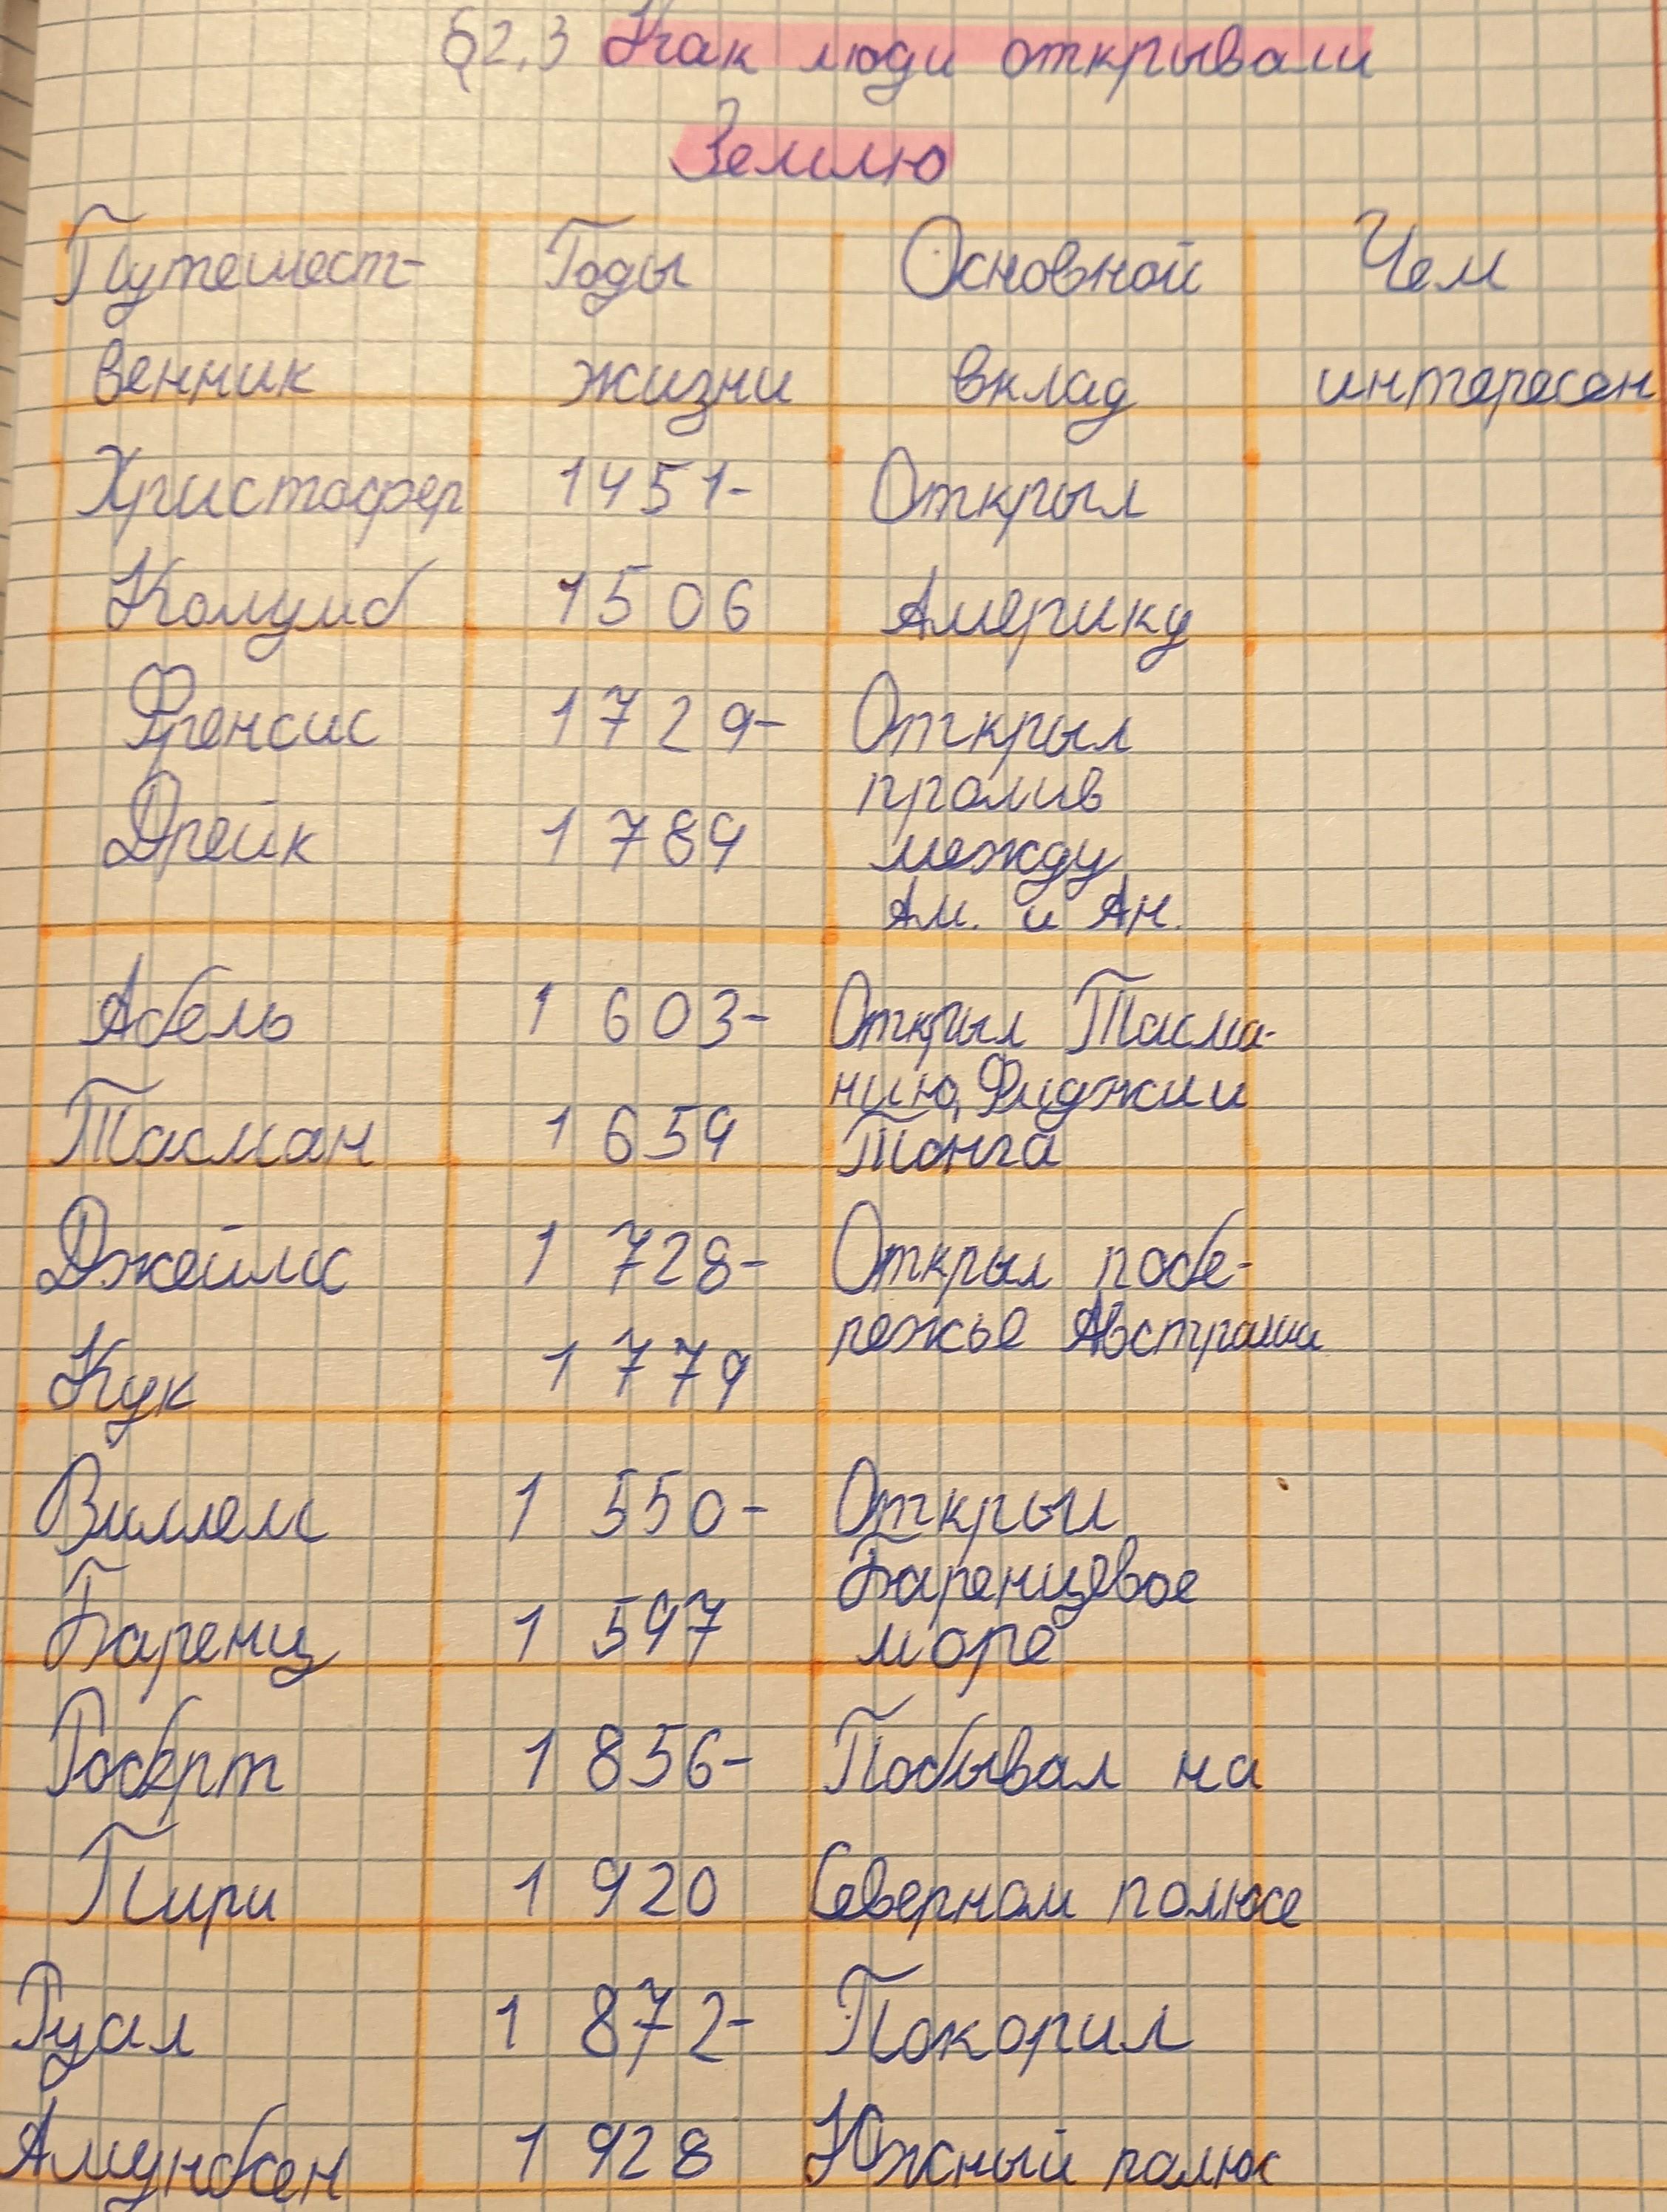 §2.3 Как люди открывали
Землю
Путешест- Годы Основной Чем
венник жизни вклад интересен
Христофер 1451- Открыл
Колумб 1506 Америку
Френсис 1729- Открыл
пролив
Дрейк 1789 между
Ам. и Ан.
Абель 1603- Открыл Тасма-
нию, Фиджи и
Тасман 1659 Тонга
Джеймс 1728- Открыл побе-
режье Австралии
Кук 1779
Виллем 1550- Открыл
Баренцевое
Баренц 1597 море
Роберт 1856- Побывал на
Пири 1920 Северном полюсе
Руал 1872- Покорил
Амундсен 1928 Южный полюс